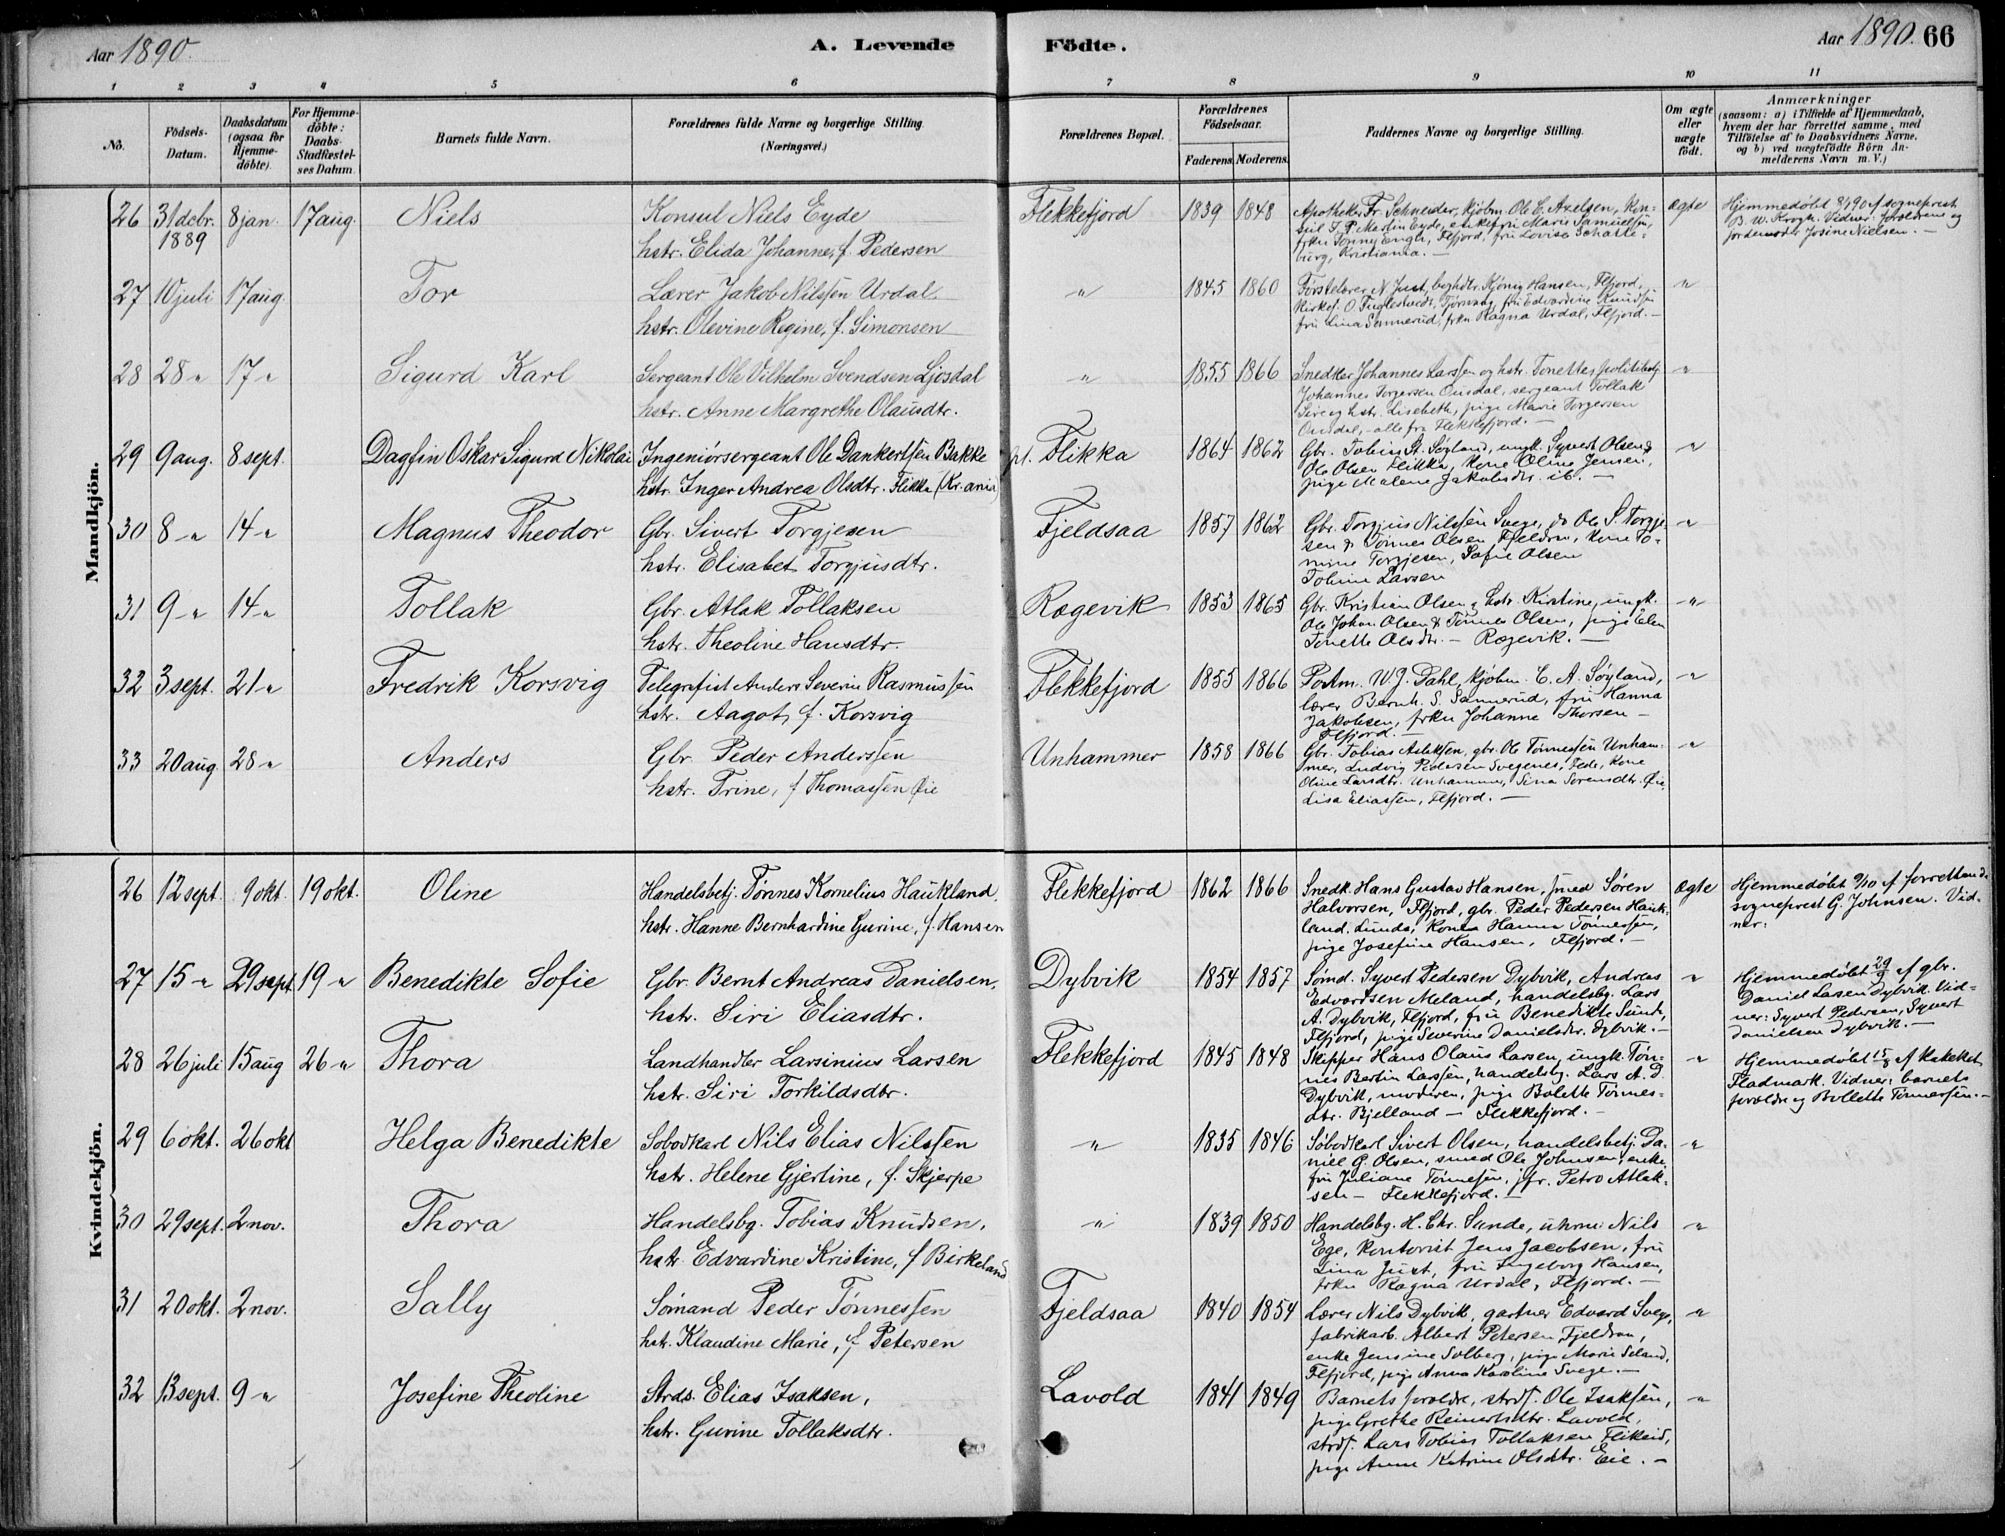 Aar 1890.
A. Levende
Födte.
Aar 1890. 66
1 2 3 4 5 6 7 8 9 10 11
No.
Födsels-Datum.
Daabsdatum (ogsaa for Hjemme-döbte).
For Hjemme-döbte: Daabs-Stadfæstel-ses Datum.
Barnets fulde Navn.
Forældrenes fulde Navne og borgerlige Stilling. (Næringsvei.)
Forældrenes Bopæl.
Forældrenes Födselsaar.
Faderens. Moderens.
Faddernes Navne og borgerlige Stilling.
Om ægte eller uægte födt.
Anmærkninger
(saasom: a) i Tilfælde af Hjemmedaab,
hvem der har forrettet samme, med
Tilföielse af to Daabsvidners Navne,
og b) ved uægtefödte Börn An-
melderens Navn m. V.)
Mandkjön.
26 31 decbr. 1889 8 jan. 17 aug. Niels
Konsul Niels Eyde
hstr. Elida Johanne, f. Pedersen
Flekkefjord 1839 1848
Apotheker Fr. Schneider, kjøbm. Ole C. Axelsen, kon-
sul T. P. Martin Eyde, enkefru Marie Samuelsen,
frkn Tonny Engh, Flfjord, fru Lovise Schatte-
burg, Kristiania. —
ægte
Hjemmedøbt 8/1 90 af sogneprest
B. W. Krogh. Vidner: forældrene og
jordemoder Josine Nielsen. —
27 10 juli 17 aug. Tor
Lærer Jakob Nilssen Urdal
hstr. Olevine Regine, f. Simonsen
" 1845 1860
Førstelærer N. Just, boghdlr. Kjönig Hansen, Flfjord,
Kirkes. O. Fuglestvedt, Tjørsvaag, fru Edvardine Knudsen
fru Lina Sannerud, frkn Ragna Urdal, Flfjord. —
"
28 28 " 17 " Sigurd Karl
Sergeant Ole Vilhelm Svendsen Ljosdal
hstr. Anne Margrethe Olausdtr.
" 1855 1866
Snedker Johannes Larssen og hstr. Tonette, politibetj.
Johannes Torgersen Ousdal, sergeant Tollak
Sire og hstr. Lisebeth, pige Marie Torgersen
Ousdal, - alle fra Flekkefjord. —
"
29 9 aug. 8 sept. Dagfin Oskar Sigurd Nikolai
Ingeniørsergeant Ole Dankertsen Bakke
hstr. Inger Andrea Olsdtr. Flikka (Kr.ania)
pt. Flikka 1864 1862
Gbr. Tobias St. Søyland, ungk. Syvert Olsen &
Ole Olsen Flikka, kone Oline Jensen,
pige Malene Jakobsdtr. ib. —
"
30 8 " 14 " Magnus Theodor
Gbr. Sivert Torgjesen
hstr. Elisabet Torgjusdtr.
Fjeldsaa 1857 1862
Gbr. Torgjus Nilssen Svege, do Ole S. Torgje-
sen & Tønnes Olsen Fjeldsaa, kone To-
mine Torgjesen, Sofie Olsen
Tobine Larsen
"
31 9 " 14 " Tollak
Gbr. Atlak Tollaksen
hstr. Theoline Hansdtr.
Rægevik 1853 1865
Gbr. Kristian Olsen & hstr. Kirstine, ungk.
Ole Johan Olsen & Tønnes Olsen, pige Elen
Tonette Olsdtr. — Rægevik. —
"
32 3 sept. 21 " Fredrik Korsvig
Telegrafist Anders Severin Rasmussen
hstr. Aagot, f. Korsvig
Flekkefjord 1855 1866
Postm. W. J. Dahl, kjøbm. C. A. Søyland,
lærer Bernh. S. Sannerud, fru Hanna
Jakobsen, frkn Johanne Thorsen —
Flfjord. —
"
33 20 aug. 28 " Anders
Gbr. Peder Anderssen
hstr. Trine, f. Thomassen Øie
Unhammer 1858 1866
Gbr. Tobias Aslaksen, gbr. Ole Tønnessen Unham-
mer, Ludvig Pedersen Svegenes, Fede, kone
Oline Larsdtr. Unhammer, Sina Sørensdtr. Øie,
Lisa Eliassen, Flfjord. —
"
Kvindekjön.
26 12 sept. 9 okt. 19 okt. Oline
Handelsbetj. Tønnes Kornelius Haukland,
hstr. Hanne Bernhardine Gurine, f. Hansen
Flekkefjord 1862 1866
Snedk. Hans Gustav Hansen, smed Søren
Halvorsen, Flfjord, gbr. Peder Pedersen Hauk-
land, Lunde, kone Hanna Tønnessen,
pige Josefine Hansen, Flfjord. —
ægte
Hjemmedøbt 9/10 af forrettende
sogneprest G. Johnsen. Vid-
ner:
27 15 " 29 sept. 19 " Benedikte Sofie
Gbr. Bernt Andreas Danielsen,
hstr. Siri Eliasdtr.
Dybvik 1854 1857
Sømd. Syvert Pedersen Dybvik, Andreas
Edvardsen Meland, handelsbg. Lars
A. Dybvik, Flfjord, fru Benedikte Sunde,
Flfjord, pige Severine Danielsdtr. Dybvik. —
"
Hjemmedøbt 29/9 af gbr.
Daniel Larsen Dybvik. Vid-
ner: Syvert Pedersen, Syvert
Danielsen Dybvik. —
28 26 juli 15 aug 26 " Thora
Landhandler Larsinius Larsen
hstr. Siri Torkildsdtr.
Flekkefjord 1845 1848
Skipper Hans Olaus Larsen, ungk. Tøn-
nes Bertin Larssen, handelsbg. Lars A. D.
Dybvik, moderen, pige Bolette Tønnes-
dtr. Bjelland — Flekkefjord. —
"
Hjemmedøbt 15/8 af kateket
Fladmark. Vidner: barnets
forældre og Bollette Tønnessen. —
29 6 okt. 26 okt Helga Benedikte
Søbodkarl Nils Elias Nilssen
hstr. Helene Gjertine, f. Skjerpe
" 1835 1846
Søbodkarl Sivert Olsen, handelsbetj. Da-
niel G. Olsen, smed Ole Johnsen, enke-
fru Juliane Tønnesen, jfr. Petro Atlak-
sen — Flekkefjord. —
"
30 29 sept. 2 nov. Thora
Handelsbg. Tobias Knudsen,
hstr. Edvardine Kristine, f. Birkeland
" 1839 1850
Handelsbg. H. Chr. Sunde, uhrm. Nils
Ege, kontorist Jens Jacobsen, fru
Lina Just, fru Ingeborg Hansen,
frkn Ragna Urdal, Flfjord. —
"
31 20 okt. 2 nov. Sally
Sømand Peder Tønnessen
hstr. Klaudine Marie, f. Petersen
Fjeldsaa 1840 1854
Lærer Nils Dybvik, gartner Edvard Svege,
fabrikarb. Albert Petersen, Fjeldsaa,
enke Jensine Solberg, pige Marie Seland,
Flfjord, pige Anna Karoline Svege. —
"
32 13 sept. 9 " Josefine Theoline
Strds. Elias Isaksen,
hstr. Gurine Tollaksdtr.
Lavold 1841 1849
Barnets forældre, strds. Ole Isaksen,
pige Grethe Reinertsdtr. Lavold,
strds. Lars Tobias Tollaksen Flikeid,
pige Anne Katrine Olsdtr. Eie. —
"